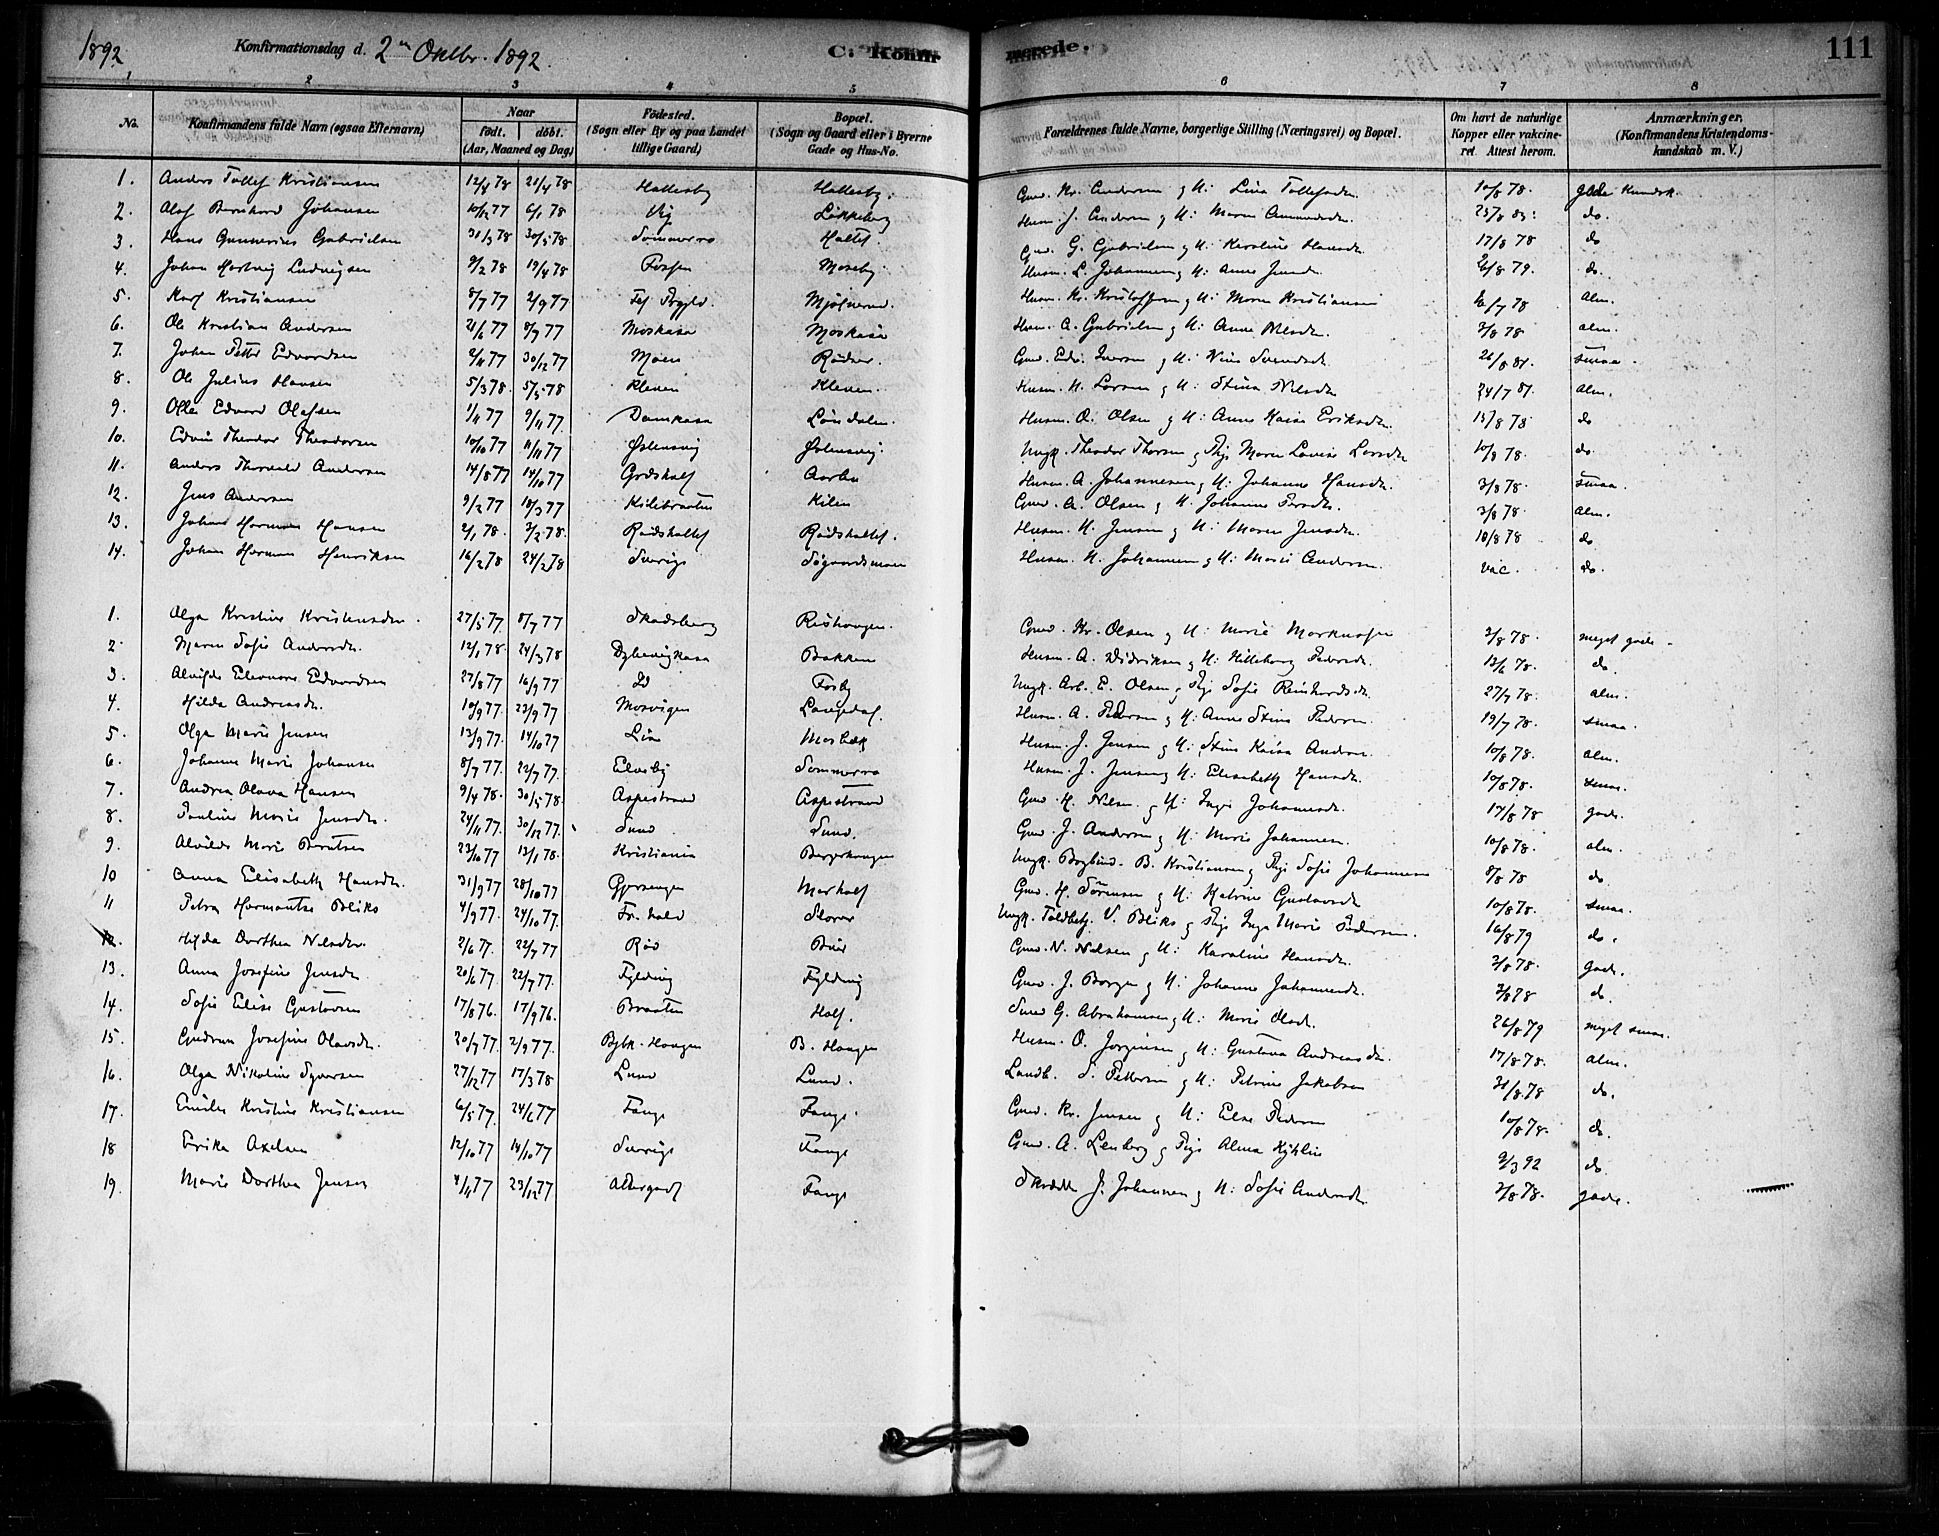 1892. Konfirmationsdag d. 2 Oktbr. 1892. C. Konfir merede. 111
1 2 3 4 5 6 7 8
No. Konfirmandens fulde Navn (ogsaa Efternavn) Naar født. døbt. (Aar, Maaned og Dag) Fødested. (Sogn eller By og paa Landet tillige Gaard) Bopæl. (Sogn og Gaard eller i Byerne Gade og Hus-No. Forældrenes fulde Navne, borgerlige Stilling (Næringsvei) og Bopæl. Om havt de naturlige Kopper eller vakcineret. Attest herom. Anmærkninger. (Konfirmandens Kristendomskundskab m. V.)
1. Anders Tollef Kristiansen 12/4 78 21/4 78 Hallesby Hallesby. Gmd. Kr. Andersen og H: Lina Tollefsdr. 10/8 78. gode Kundsk.
2. Olaf Bernhard Johansen 10/12 77 6/1 78 Vig Løkkeberg Husm. J. Andersen og H: Maren Amundsdr. 25/8 83. do.
3. Hans Gunnerius Gabrielsen 31/3 78 30/5 78 Sommerro Holtet. Gmd. G. Gabrielsen og H: Karoline Hansdr. 17/8 78 do
4. Johan Hartvig Ludvigsen 9/2 78 19/4 78 Fossen Moseby. Husm. L. Johannesen og H: Anne Jensdr. 26/8 79. do.
5. Karl Kristiansen 8/7 77 2/9 77 Husm. Kr. Kristoffersen og H: Maren Kristiansen 78 Alm.
6. Ole Kristian Andersen 21/6 77 8/7 77 Moskasa Moskasa Husm. A. Gabrielsen og H: Anne Nilsdr. 3/8 78 alm.
7. Johan Petter Edvardsen 2/11 77 30/12 77 Moen Rødser. Gmd. Edv. Iversen og H: 26/8 81. smaa.
8. Ole Julius Hansen 5/3 78. 5/5 78 Kleven Kleven. Husm. H. Larsen og H: Stina Nilsdr 24/7 81. alm.
9. Olle Edvard Olafsen 1/11 77 9/11 77. Damkasa Løndalen. Husm. O. Olsen og H: Anne Kaisa Eriksdr. 13/8 78 do
10. Edvin Theodor Theodorsen 10/10 77 11/11 77 Østensvig Østensvig. Ungk. Theodor Thorsen og Pige Maren Lovise Larsdr 10/8 78. do.
11. Anders Thorvald Andersen 14/8 77 14/10 77 Grødshalf Aarbu Husm. A. Johannesen og H: Johanne Hansdr. 3/8 78. smaa.
12. Jens Andersen 9/2 77 18/3 77 Kilebraaten Kilen Gmd. A. Olsen og H: Johanne 3/8 78. alm.
13. Johan Herman Hansen 2/1 78. 3/2 78. Rødshaltet Rødshaltet. Husm. H. Jensen og H: Maren Jensdr. 10/8 78 do
14. Johan Herman Henriksen 16/2 78 24/2 78 Sverige Søgaardsmoen Husm. H. Johannesen og H: Marie Andersen. vac. do.
1. Olga Kristine Kristensdr. 27/5 77. 8/7 77 Skadsberg Rishaugen. Gmd. Kr. Olsen og H: Marie Markusen 3/8 78. meget gode.
2. Maren Sofie Andersdr. 12/1 78. 24/3 78 Dybevigkasa Bakken Husm. A. Didriksen og H: Hilleborg Pedersdr. 13/6 78. do.
3. Alvilde Eleonore Edvardsen 27/8 77 16/9 77 Id Torby Ungk. Arb. E. Olsen og Pige Sofie Reinhardsdr. 27/7 78. alm.
4. Hilda Andreasdr. 10/9 77. 23/9 77 Mosvigen Langedal. Husm. A. Pedersen og H: Anne Stine Pedersen. 19/7 78. smaa.
5. Olga Marie Jensen 13/9 77. 14/10 77 Lia Mosbæk Husm. J. Jensen og H: Stine Kaisa Anders. 10/8 78. alm.
6. Johanne Marie Johansen 8/7 77. 22/7 77. Elneby Sommerro Husm. J. Jensen og H: Elisabeth Hansdr. 10/8 78. smaa.
7. Andrea Olava Hansen 9/4 78. 30/5 78. Aspestrand Aspestrand Gmd. H. Nilsen og H: Inger Johannesdr. 17/8 78 gode.
8. Pauline Marie Jensdr. 24/11 77. 30/12 77. Sund Sund. Gmd. J. Andersen og H: Marie Johannesen. 10/8 78. alm.
9. Alvilde Marie Berntsen 23/10 77 13/1 78. Kristiania Borgerhaugen Ungk. B. Kristiansen og Pige Sofie Johannesen 8/8 78 do.
10 Anna Elisabeth Hansdr. 31/9 77 28/10 77 Gjersengen Morhalf Gmd. H. Sørensen og H: Katrine Gustavsdr 10/8 78. smaa.
11 Petra Hermantse Bliks 4/9 77. 24/10 77. Fr. hald Storer Ungk. Toldbetj. V. Bliks og Pige Inga Marie Pedersen. 16/8 79 do.
12. Hilda Dorthea Nilsdr. 2/6 77. 22/7 77 Rød Buer Gmd. N. Nilsen og H: Karoline Hansdr. 3/8 78. gode.
13. Anna Josefine Jensdr. 20/6 77 22/7 77. Fjelding Fjelding Gmd. J. Borge og H: Johanne Johannesdr. 3/8 78 do.
14. Sofie Elise Gustavsen 17/8 76. 17/9 76. Braaten Half. Smed G. Abrahamsen og H: Marie Olsdr. 26/8 79 meget smaa.
15. Gudrun Josefine Olavsdr. 20/7 77. 2/9 77. Bjbk. Haugen B. Haugen Husm. O. Jørginsen og H: Gustava Andreasdr. 17/8 78. alm.
16. Olga Nikoline Syversen 27/12 77 17/3 78 Lund Lund. Landh. S. Pettersen og H: Petrine Jakobsen 31/8 78 do.
17. Emilie Kristine Kristiansen 6/5 77. 24/6 77 Fange Fange. Gmd. Kr. Jensen og H: Else Pedersen 10/8 78. do.
18 Erika Axelsen 12/10 77 14/10 77 Sverige Fange Gmd. A. Lenberg og Pige Alma Kyhlin 9/3 92 do.
19. Marie Dorthea Jensen 4/11 77 23/12 77 Fange Skrædder J. Johannesen og H: Sofie Andersdr. 3/8 78. gode.